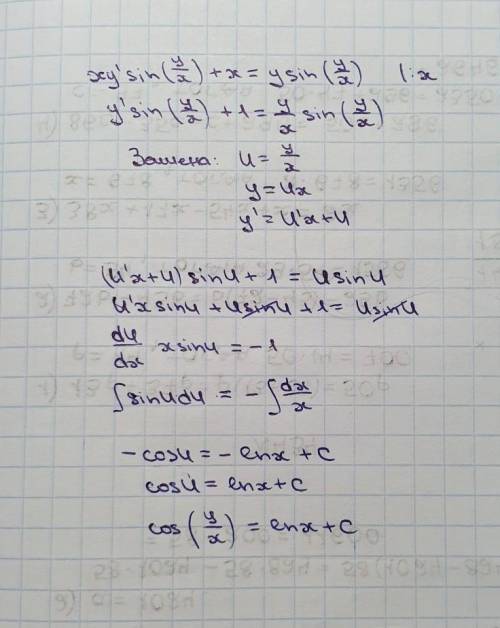 xy' sin(y/x) + x = y sin(y/x) |:x
y' sin(y/x) + 1 = y/x sin(y/x)
Замена: u = y/x
y = ux
y' = u'x + u
(u'x + u) sin u + 1 = u sin u
u'x sin u + u sin u + 1 = u sin u
du/dx x sin u = -1
∫ sin u du = - ∫ dx/x
-cos u = -ln x + C
cos u = ln x + C
cos(y/x) = ln x + C